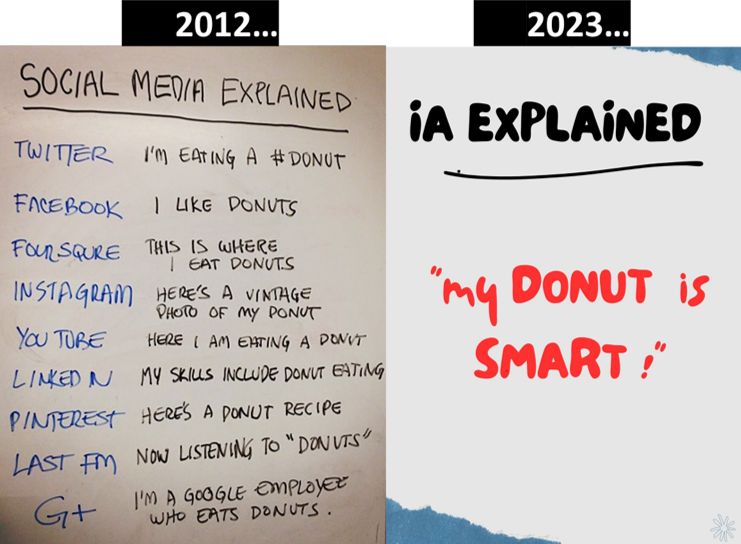 2012...
SOCIAL MEDIA EXPLAINED
TWITTER I'M EATING A #DONUT
FACEBOOK I LIKE DONUTS
FOURSQURE THIS IS WHERE
I EAT DONUTS
INSTAGRAM HERE'S A VINTAGE
PHOTO OF MY DONUT
YOU TUBE HERE I AM EATING A DONUT
LINKED IN MY SKILLS INCLUDE DONUT EATING
PINTEREST HERE'S A DONUT RECIPE
LAST FM NOW LISTENING TO "DONUTS"
G+ I'M A GOOGLE EMPLOYEE
WHO EATS DONUTS.
2023...
iA EXPLAiNED
"my DONUT is
SMART!"